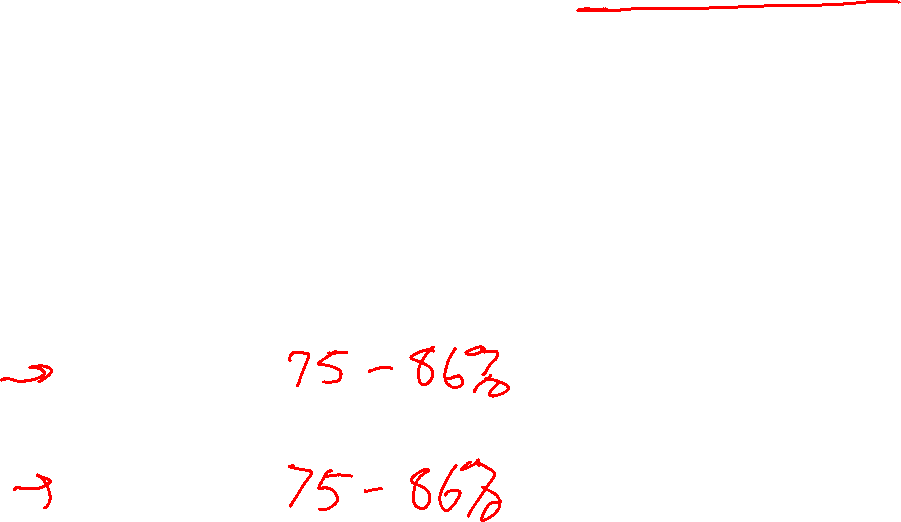 → 75 - 86%
→ 75 - 86%